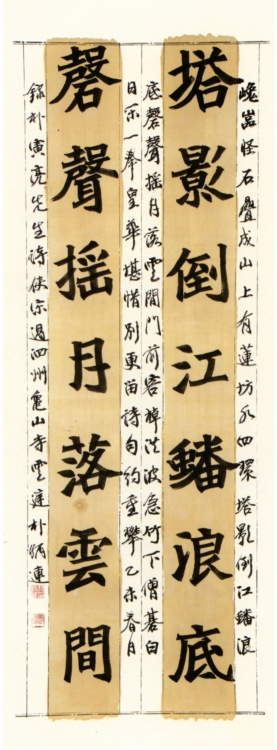 巉嵓怪石疊成山上有蓮坊水四環塔影倒江蟠浪
塔影倒江蟠浪底
底磬聲搖月落雲間門前客棹洪波急竹下僧碁白
日閑一奉皇華堪惜別更留詩句約重攀乙未春日
磬聲搖月落雲間
錄朴寅亮先生詩使宋過泗州龜山寺雲庭朴炳連